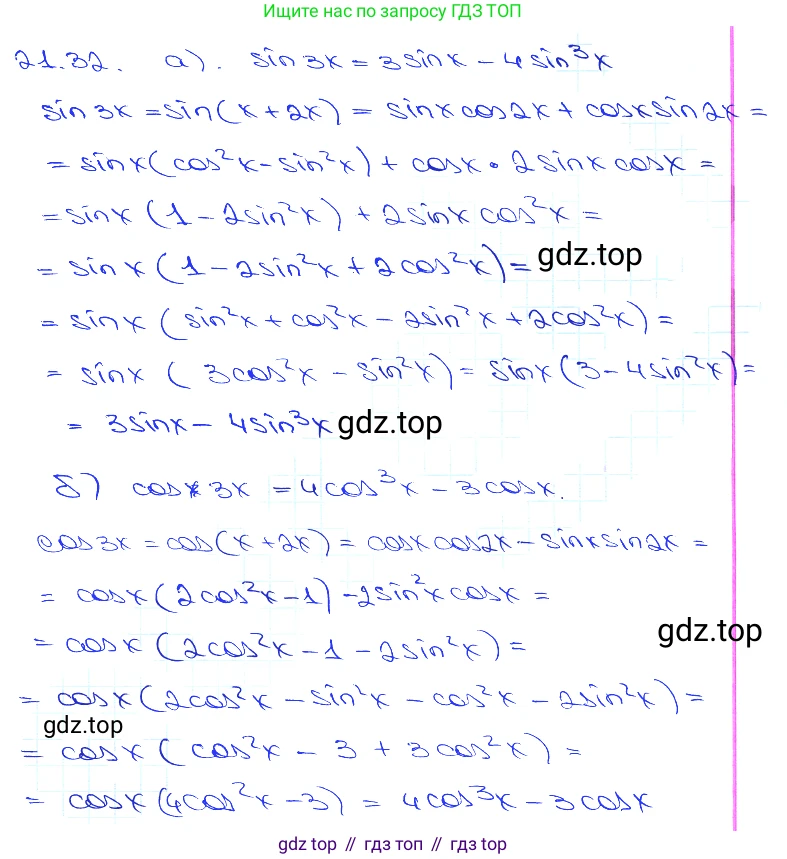 Ищите нас по запросу ГДЗ ТОП
21.32. а). sin3x = 3sinx - 4sin³x
sin3x = sin(x+2x) = sinx cos2x + cosx sin2x =
= sinx(cos²x - sin²x) + cosx · 2sinx cosx =
= sinx (1 - 2sin²x) + 2sinx cos²x =
= sinx (1 - 2sin²x + 2cos²x) = gdz.top
= sinx (sin²x + cos²x - 2sin²x + 2cos²x) =
= sinx (3cos²x - sin²x) = sinx (3 - 4sin²x) =
= 3sinx - 4sin³x gdz.top
б) cos3x = 4cos³x - 3cosx.
cos3x = cos(x+2x) = cosx cos2x - sinx sin2x =
= cosx (2cos²x - 1) - 2sin²x cosx =
= cosx (2cos²x - 1 - 2sin²x) =
gdz.top
= cosx (2cos²x - sin²x - cos²x - 2sin²x) =
gdz.top
= cosx (cos²x - 3 + 3cos²x) =
= cosx (4cos²x - 3) = 4cos³x - 3cosx
gdz top // гдз топ // gdz top